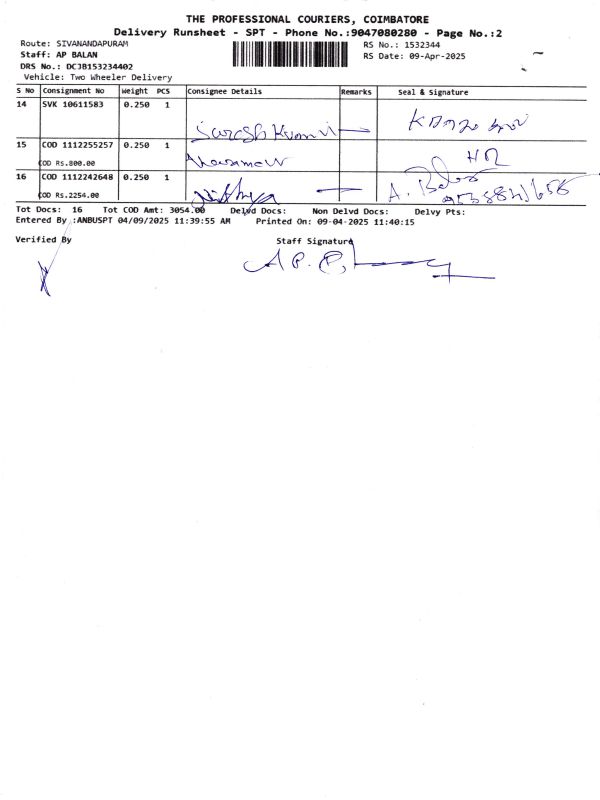 THE PROFESSIONAL COURIERS, COIMBATORE
Delivery Runsheet - SPT - Phone No.:9047080280 - Page No.:2
Route: SIVANANDAPURAM
RS No.: 1532344
Staff: AP BALAN
RS Date: 09-Apr-2025
DRS No.: DCJB153234402
Vehicle: Two Wheeler Delivery
S No Consignment No Weight PCS Consignee Details Remarks Seal & Signature
14 SVK 10611583 0.250 1
Suresh Kumar
15 COD 1112255257 0.250 1
COD Rs.800.00
16 COD 1112242648 0.250 1
COD Rs.2254.00 Nithya A.
Tot Docs: 16 Tot COD Amt: 3054.00 Delvd Docs: Non Delvd Docs: Delvy Pts:
Entered By :ANBUSPT 04/09/2025 11:39:55 AM Printed On: 09-04-2025 11:40:15
Verified By Staff Signature